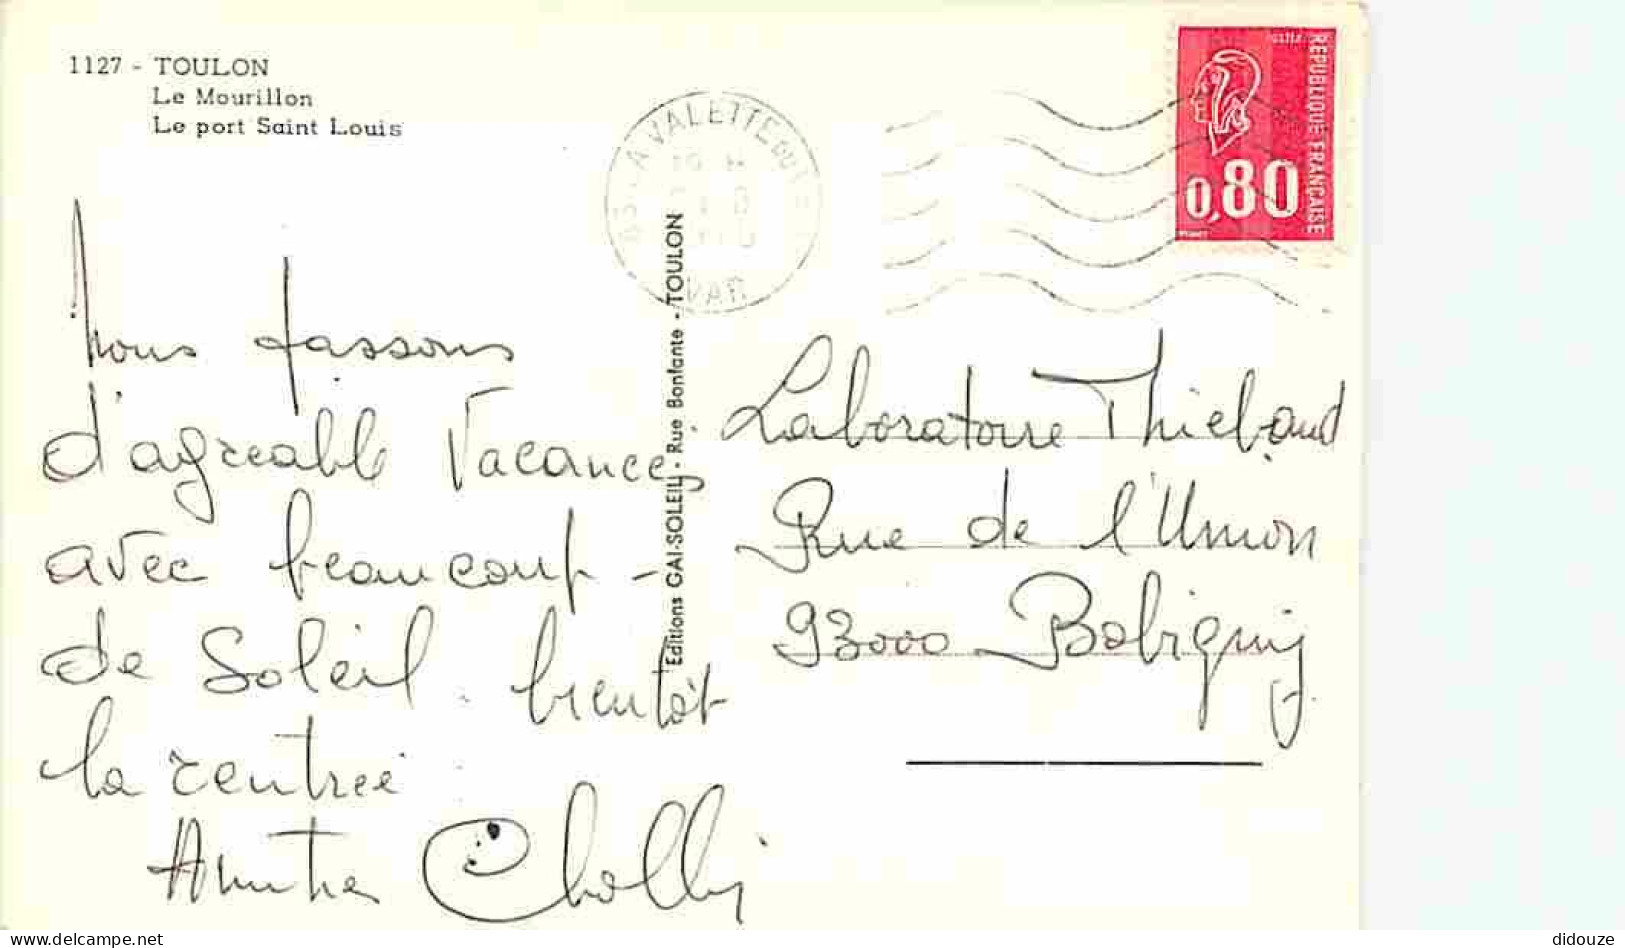 1127 - TOULON
Le Mourillon
Le port Saint Louis
LA VALETTE DU
VAR
POSTES
REPUBLIQUE FRANÇAISE
0,80
Editions GAI-SOLEIL - Rue Bonfante - TOULON
Nous passons
d'agréable Vacances
avec beaucoup -
de Soleil. bientôt
la rentrée
Laboratoire Thiebaud
Rue de l'Union
93000 Bobigny
delcampe.net
didouze